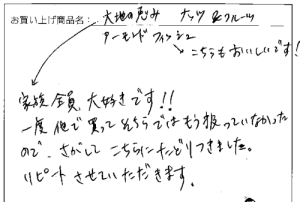 お買い上げ商品名: 大地の恵み ナッツ&フルーツ
アーモンドフィッシュ
こちらもおいしいです!
家族全員、大好きです!!
一度他で買ってそちらではもう扱っていなかった
ので、さがしてこちらにたどりつきました。
リピートさせていただきます。